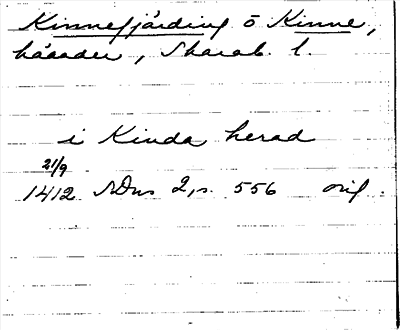 Kinnefjärding ö Kinne,
härader, Skarab. l.
i Kinda herad
21/9
1412 SDns 2, s. 556 orig.